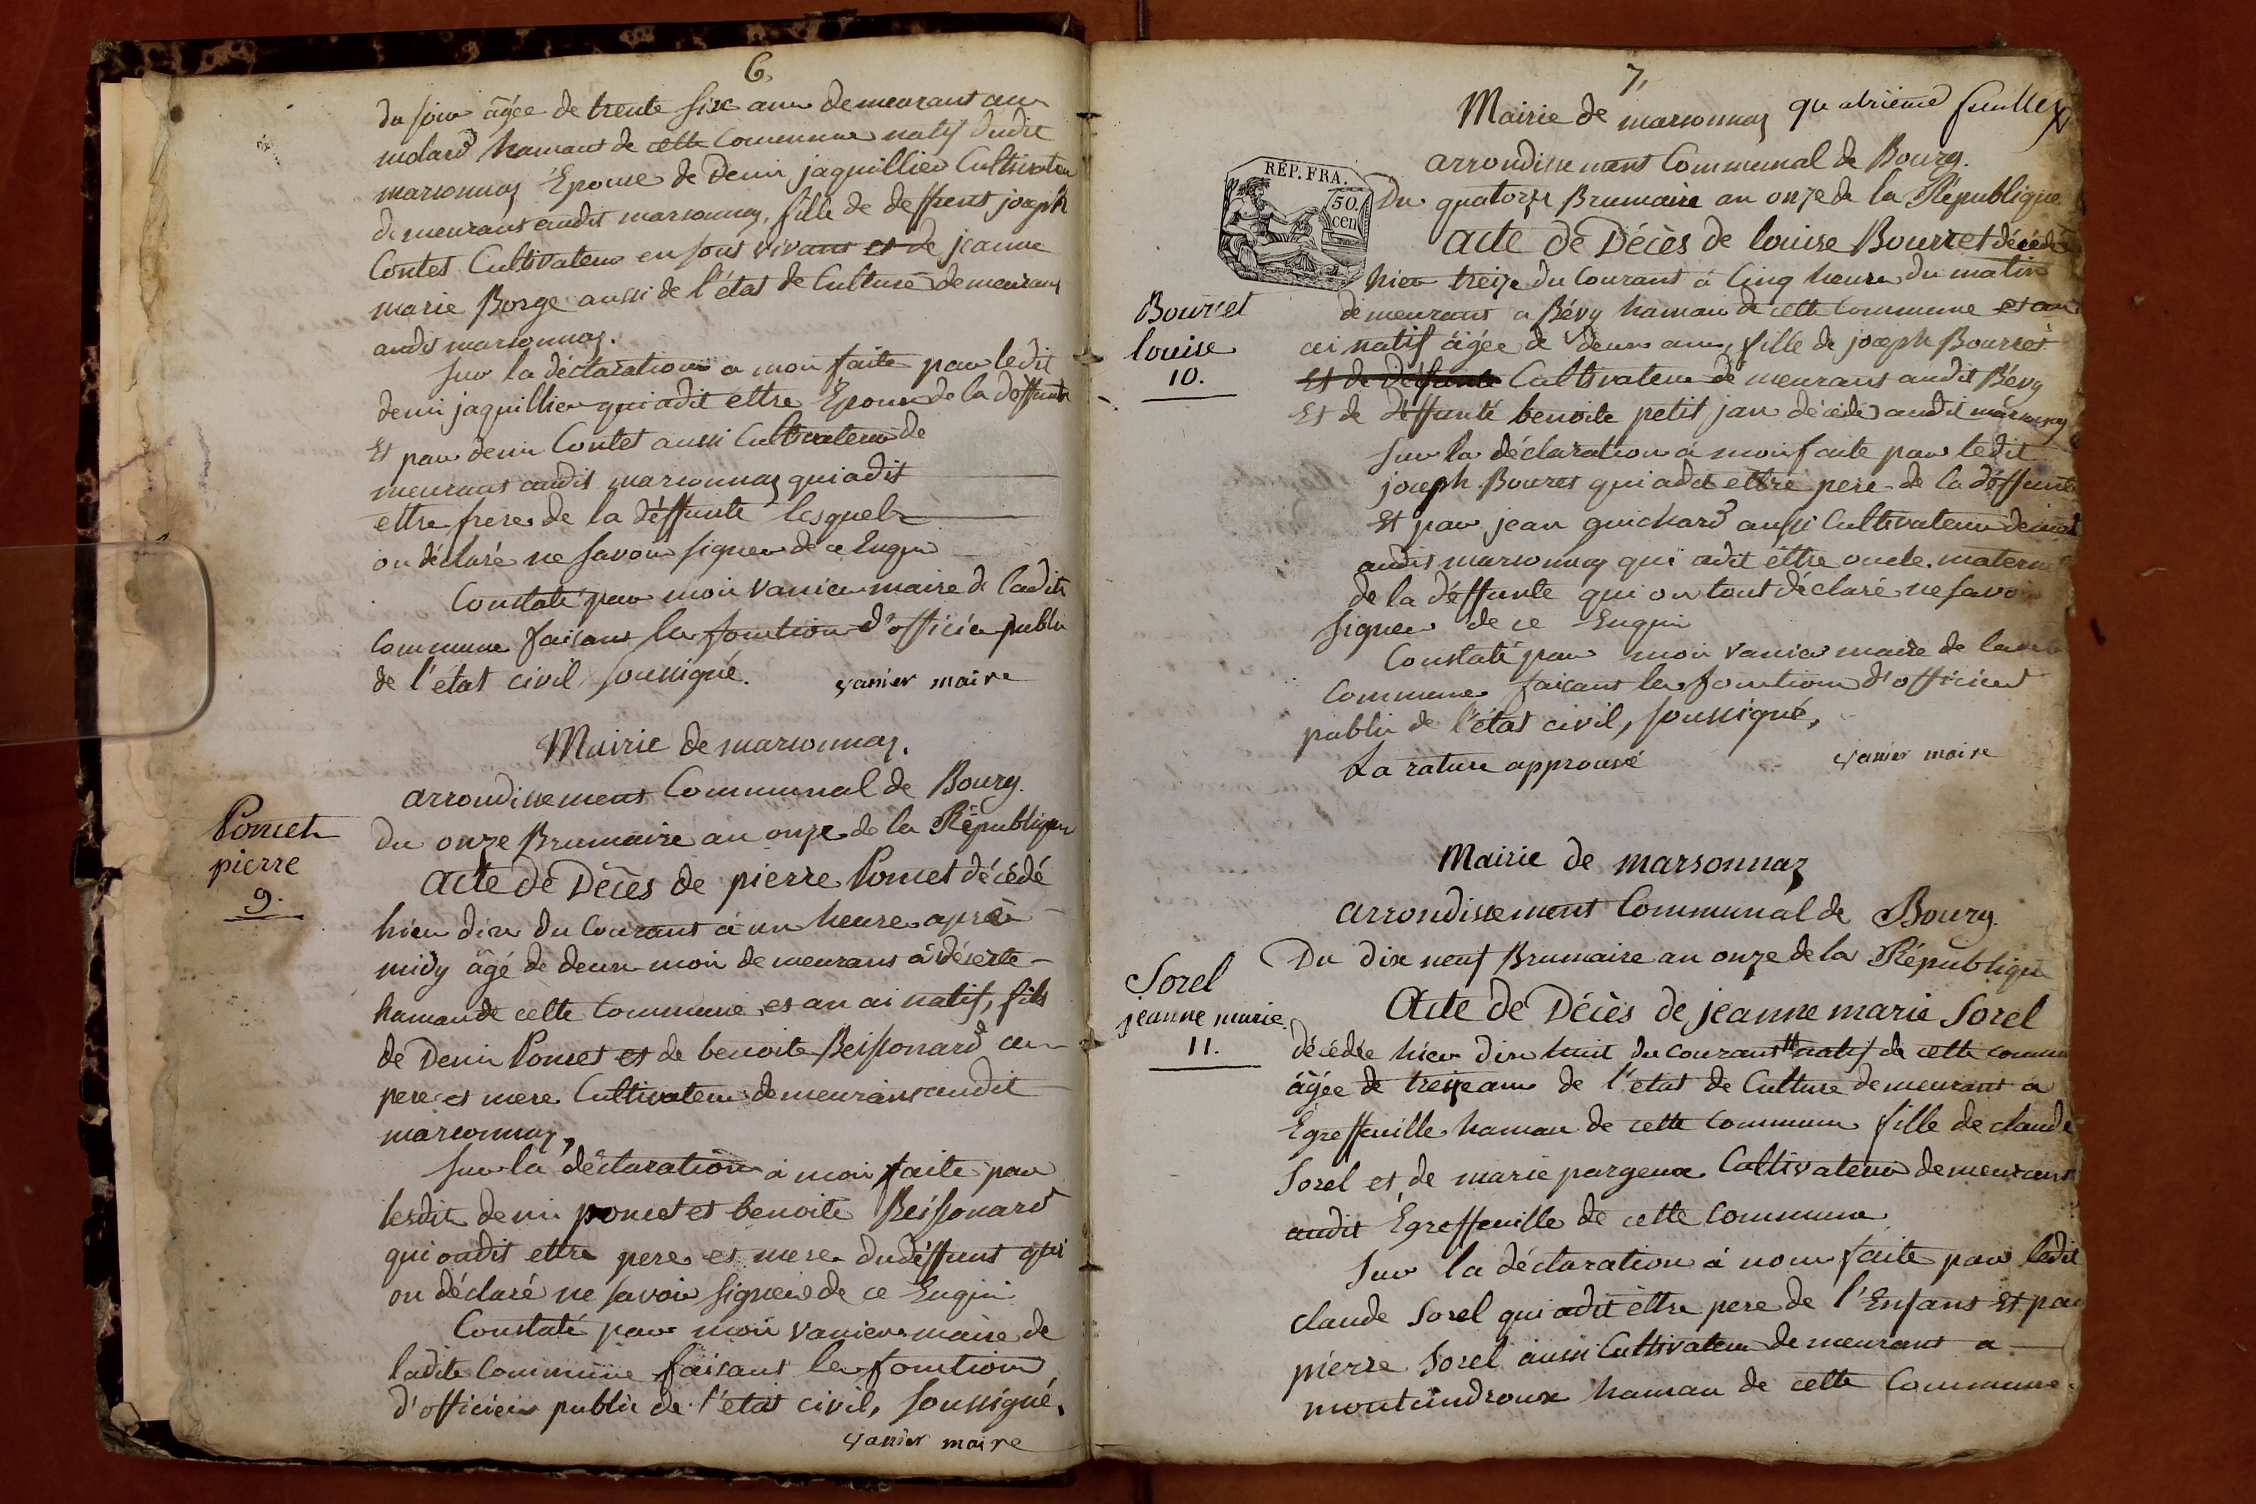 6,
du soir âgée de trente six ans demeurant au
molard hamaut de cette Commune natif dudit
marsonnaz Epouse de Deni jaquillier Cultivateur
demeurant audit marsonnaz, fille de deffunt joseph
Contet Cultivateur en sont vivant et de jeanne
marie Borge aussi de l'état de Culture demeurant
audit marsonnaz.
Sur la déclaration a moi faite par ledit
deni jaquillier qui a dit ettre Epoux de la deffunte
Et par deni Contet aussi Cultivateur de
meurant audit marsonnaz qui a dit
ettre frere de la déffunte lesquels
on déclaré ne savoir signer de ce Enqui
Constaté par moi vanier maire de ladite
Commune faisant les fonction d'officier public
de l'etat civil soussigné.
vanier maire
Mairie de marsonnaz.
arrondissement Communal de Bourg.
Poncet
pierre
9.
Du onze Brumaire an onze de la République
Acte de Décès de pierre Poncet décédé
hier dix du Courant à un heure après
midy âgé de deux moi demeurant à déserte
hamau de cette Commune et an ai natif, fils
de Deni Poncet et de benoite Beissonard ces
pere et mere Cultivateur demeurant audit
marsonnaz,
Sur la déclaration à moi faite par
lesdit deni poncet et benoite Beissonard
qui on dit ettre pere et mere du déffunt qui
on déclaré ne savoir signer de ce Enqui
Constaté par moi vanier maire de
ladite Commune faisant les fonction
d'officier public de l'état civil, soussigné.
vanier maire
7,
Mairie de marsonnaz quatrième feuillet
arrondissement Communal de Bourg.
RÉP. FRA.
50.
cen
Du quatorze Brumaire an onze de la République
Acte de Décès de louise Bourret décédée
hier treize du Courant à Cinq heure du matin
Bourret
louise
10.
demeurant a Bévy hamau de cette Commune et an
ai natif âgée de deux ans, fille de joseph Bourret
Et de défunte Cultivateur demeurant audit Bévy
Et de déffunte benoite petit jan décédé audit marsonnaz
Sur la déclaration à moi faite par ledit
joseph Bouret qui a dit ettre pere de la déffunte
Et par jean guichard aussi Cultivateur demeurt
audit marsonnaz qui a dit éttre oncle maternel
de la déffunte qui on tout déclaré ne savoir
signer de ce Enqui
Constaté par moi vanier maire de ladite
Commune faisant les fonction d'officier
public de l'état civil, soussigné,
La rature approuvé
vanier maire
Mairie de marsonnaz
arrondissement Communal de Bourg.
Du dix neuf Brumaire an onze de la République
Sorel
jeanne marie
11.
Acte de Décès de jeanne marie Sorel
décédée hier dix huit du courant natif de cette commune
âgée de treize ans de l'état de Culture demeurant a
Egreffeuille hamau de cette Commune fille de claude
Sorel et de marie pargeux Cultivateur demeurant
audit Egreffeuille de cette Commune
Sur la déclaration à nour faite par ledit
claude Sorel qui a dit êttre pere de l'Enfant Et par
pierre Sorel aussi Cultivateur demeurant a
montindroux hamau de cette Commune.